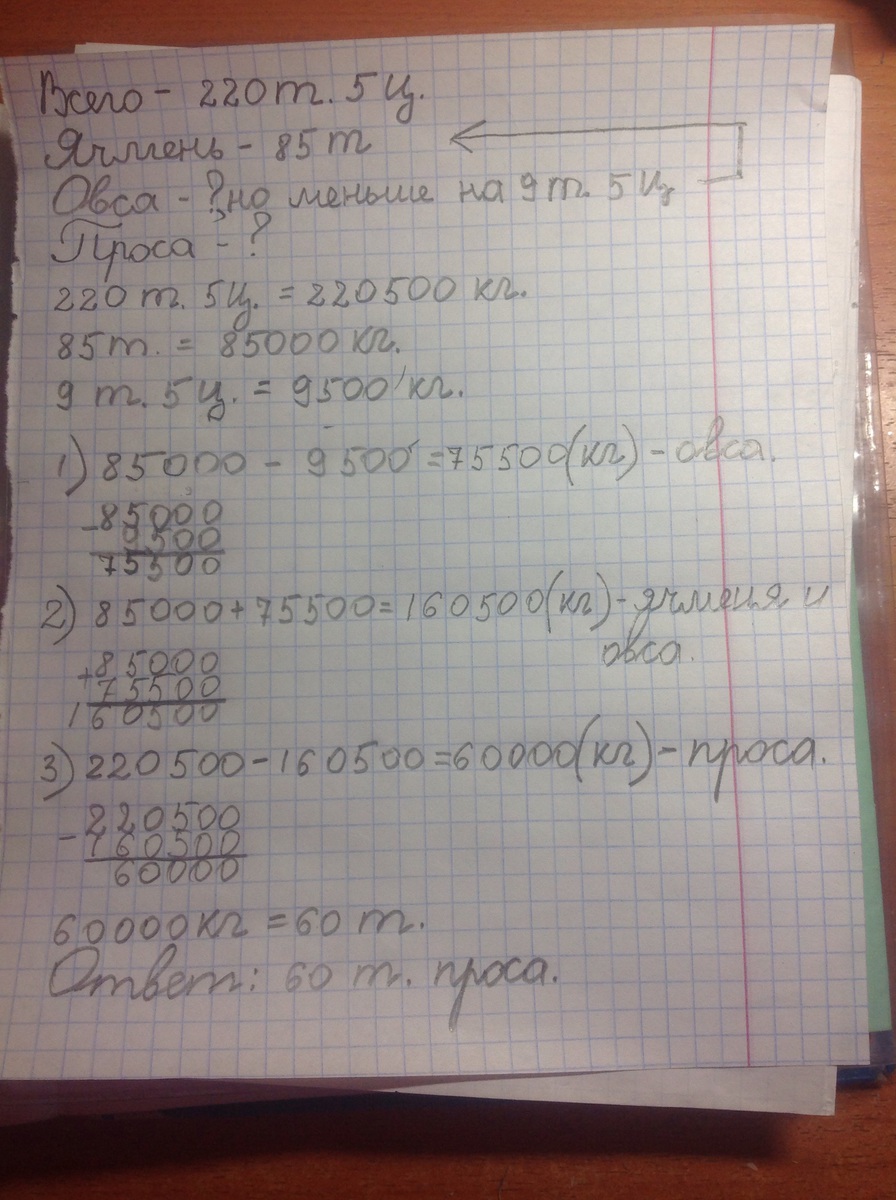 Всего - 220 т. 5 ц.
Ячмень - 85 т
Овса - ? но меньше на 9 т. 5 ц
Проса - ?
220 т. 5 ц. = 220500 кг.
85 т. = 85000 кг.
9 т. 5 ц. = 9500 кг.
1) 85000 - 9500 = 75500 (кг) - овса.
-85000
9500
75500
2) 85000 + 75500 = 160500 (кг) - ячменя и
овса.
+85000
75500
160500
3) 220500 - 160500 = 60000 (кг) - проса.
220500
- 160500
60000
60000 кг = 60 т.
Ответ: 60 т. проса.